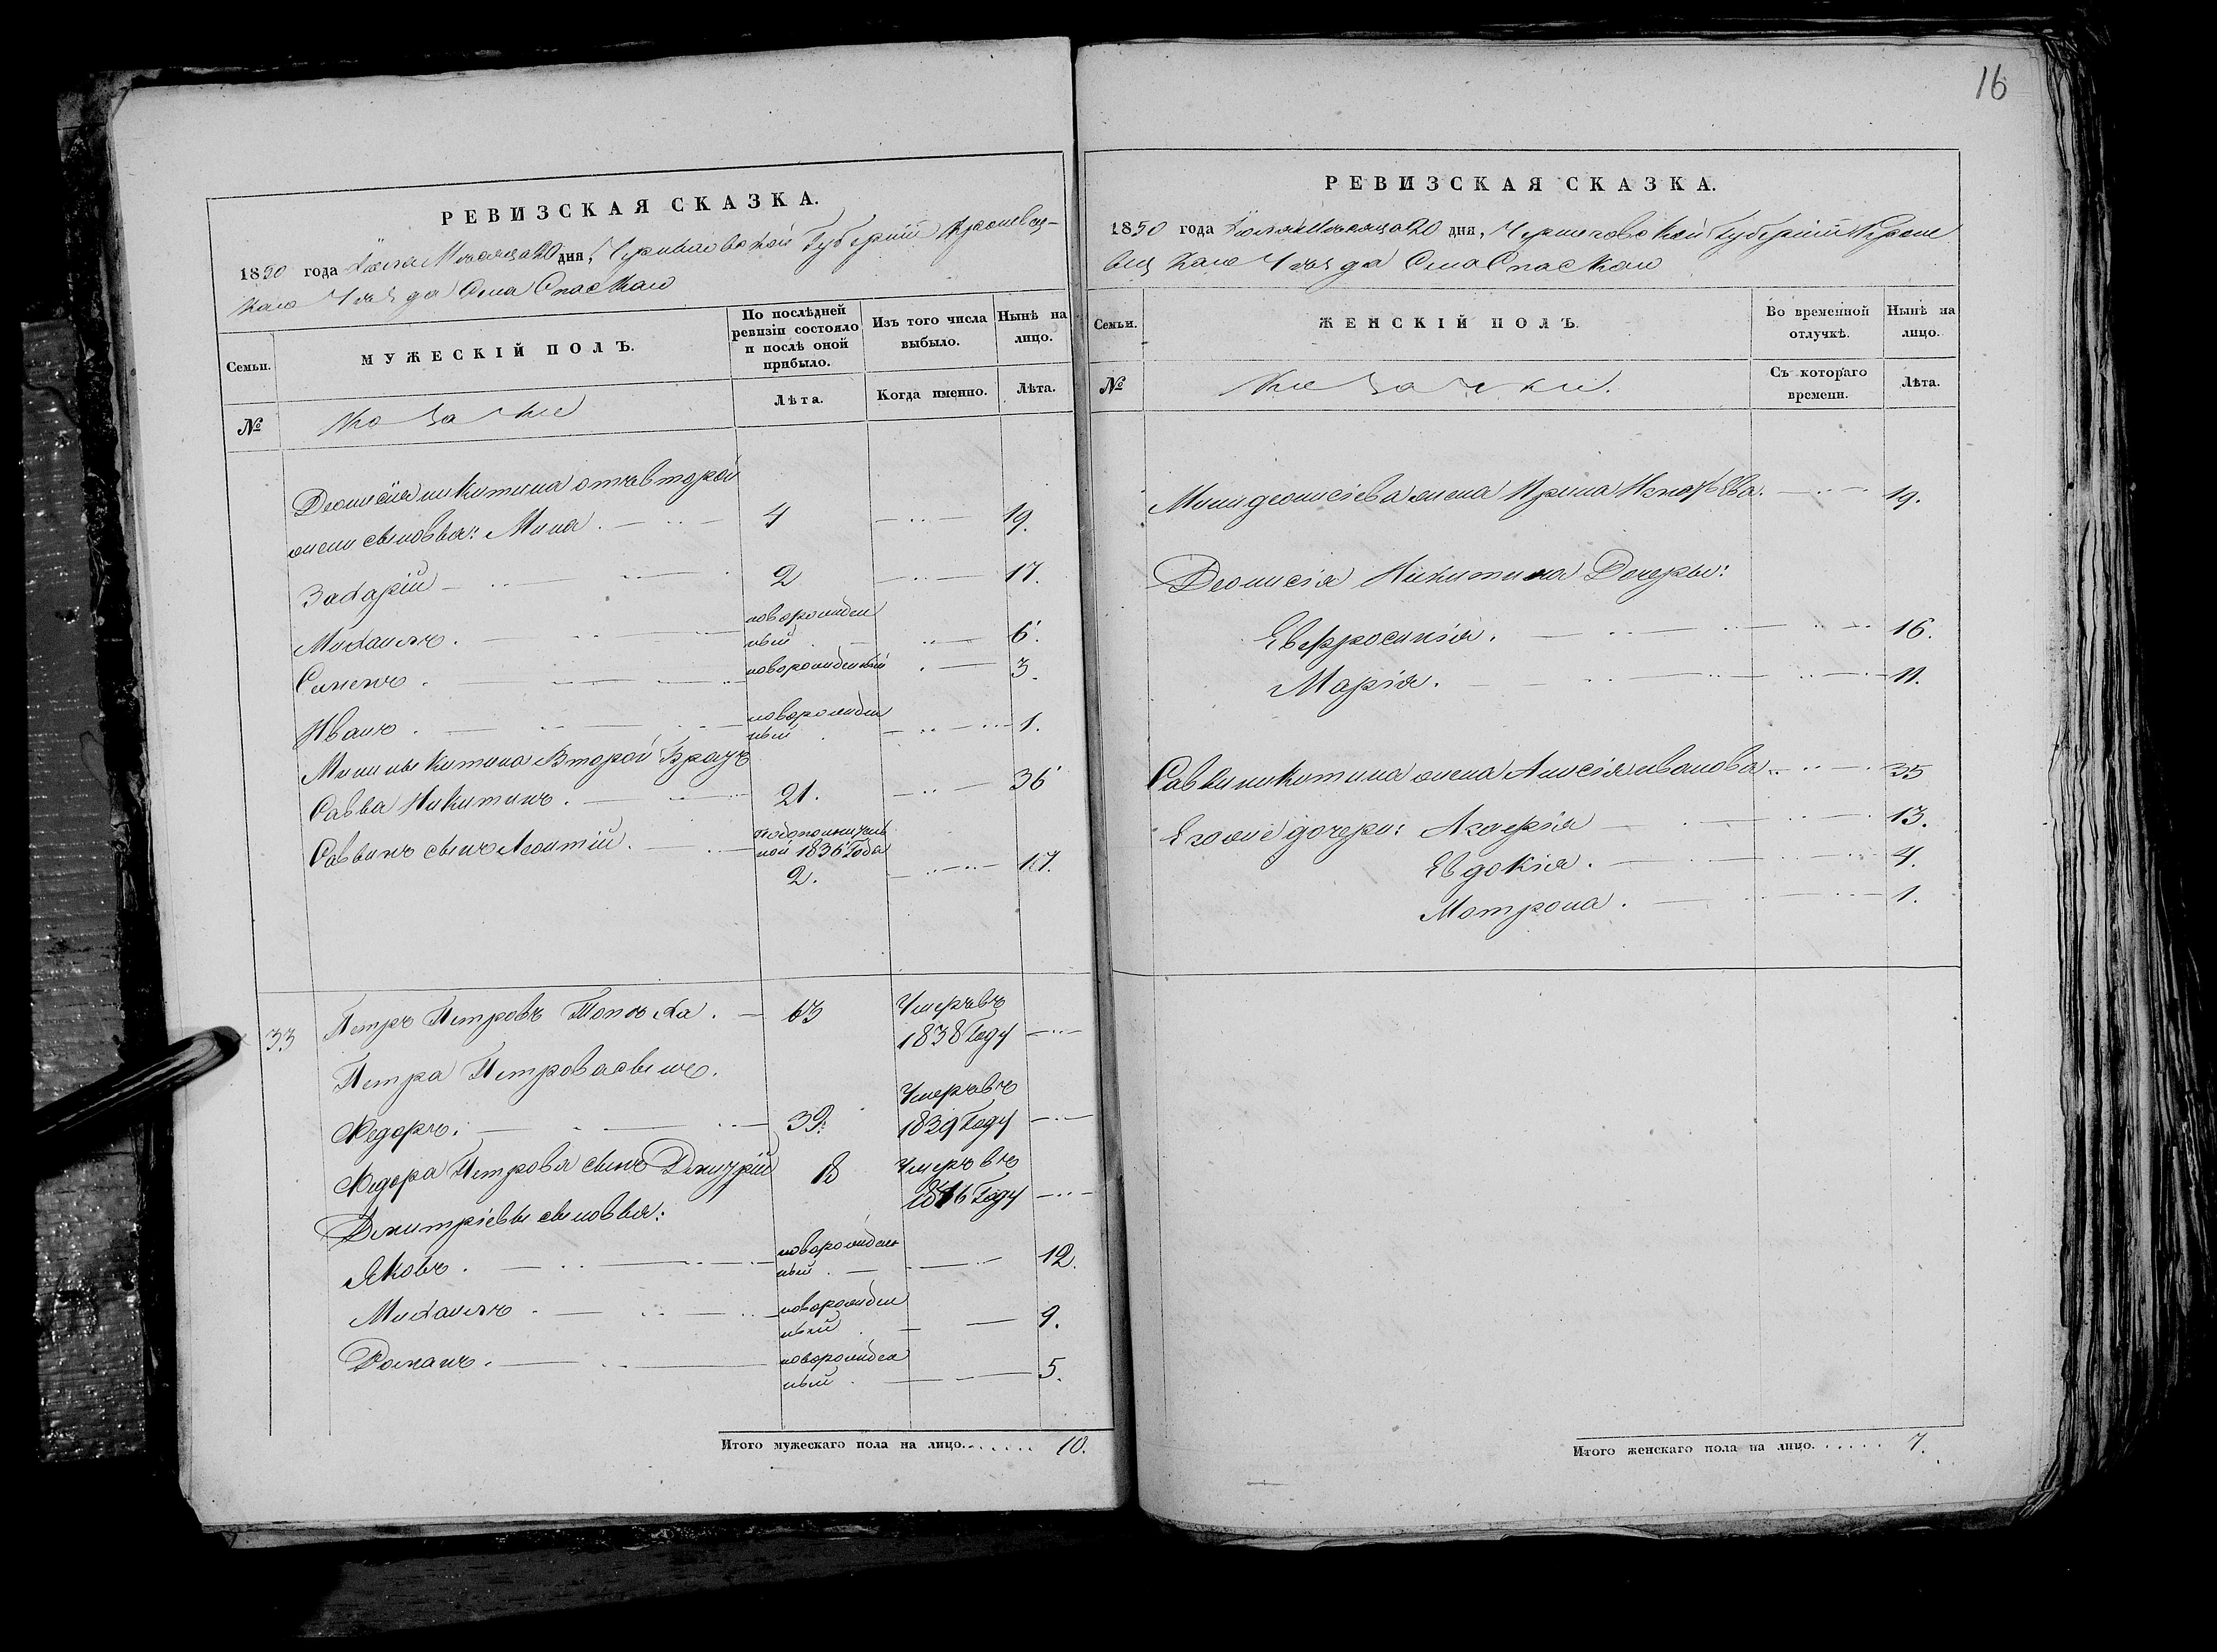 16
РЕВИЗСКАЯ СКАЗКА.
1850 года Іюля Месяца 20 дня, Черниговской Губерніи Кролевец-
каго Уезда Села Спаскаго
Семьи.
МУЖЕСКІЙ ПОЛЪ.
По послѣдней ревизіи состояло и послѣ оной прибыло.
Изъ того числа выбыло.
Нынѣ на лицо.
№
Козаки
Лѣта.
Когда именно.
Лѣта.
Деонисія Никитина отъ второй
жены сыновья: Мина. 4 19.
Захарій 2 17.
Михаилъ. новорожден
ный 6.
Сименъ. новорожденный 3.
Иванъ. новорожден
ный 1.
Мины Никитина второй братъ
Савва Никитинъ. 21. 36
Саввинъ сынъ Леонтій. по дополнитель
ной 1836 Года
2. 17.
33 Петръ Петровъ 63 Умеръ въ
1838 Году
Петра Петрова сынъ.
Федоръ. 39. Умеръ въ
1839 Году
Федора Петрова сынъ Дмитрій 18 Умеръ въ
1846 Году
Дмитріевы сыновья:
Яковъ. новорожден
ный 12.
Михаилъ новорожден
ный 9.
Романъ. новорожден
ный 5.
Итого мужескаго пола на лицо....... 10.
РЕВИЗСКАЯ СКАЗКА.
1850 года Іюля Месяца 20 дня, Черниговской Губерніи Кроле
вецкаго Уезда Села Спаскаго
Семьи.
ЖЕНСКІЙ ПОЛЪ.
Во временной отлучкѣ.
Нынѣ на лицо.
№
Козачки.
Съ котораго времени.
Лѣта.
Мины Деонисіева жена Ирина 19.
Деонисія Никитина Дочеры:
Евфросинія. 16.
Марія. 11.
Саввы Никитина жена Анисія Иванова 35
Его же дочери: Агафія 13.
Евдокія. 4.
Мотрона. 1.
Итого женскаго пола на лицо...... 7.